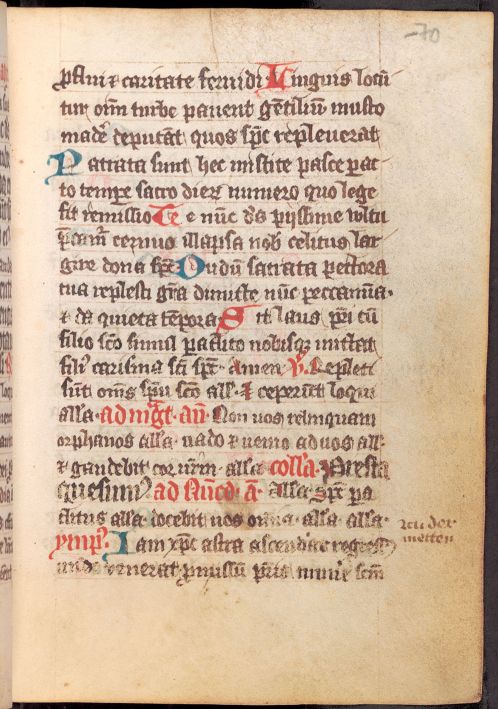 -70
pflui ⁊ caritate feruidi Linguis locū
tur om̄ turbe pauent gētiliū musto
made deputāt quos spc̄ repleuerat
Patrata sunt hec mistice pasce pac
to tempe sacro dieꝝ numero quo lege
fit remissio Te nūc ds̄ pijssime vltu
p̄camꝰ cernuo illapsa nob celitus lar
gire dona spc̄ Dudū sacrata pectora
tua replesti gr̄a dimitte nūc peccamīa
⁊ da quieta tēpora Sit laus pr̄i cū
filio sc̄o simul paclito nobisqꝫ mittat
filiꝰ carisma sc̄i spc̄ Amen V̄ Repleti
sūt om̄s spū sc̄o all̄a ⁊ ceperūt loqui
all̄a ad mgt̄ an̄ Non vos relinquam
orphanos all̄a vado ⁊ venio ad vos all̄a
⁊ gaudebit cor vr̄m all̄a coll̄a Presta
quesumꝰ ad Nūcd a All̄a spc̄ pa
clitus all̄a docebit vos omīa all̄a all̄a
ymp̄ Iam xpc̄ astra ascendat regress
unde venerat pmissū pr̄is munꝰe sc̄m
zcu der
metten